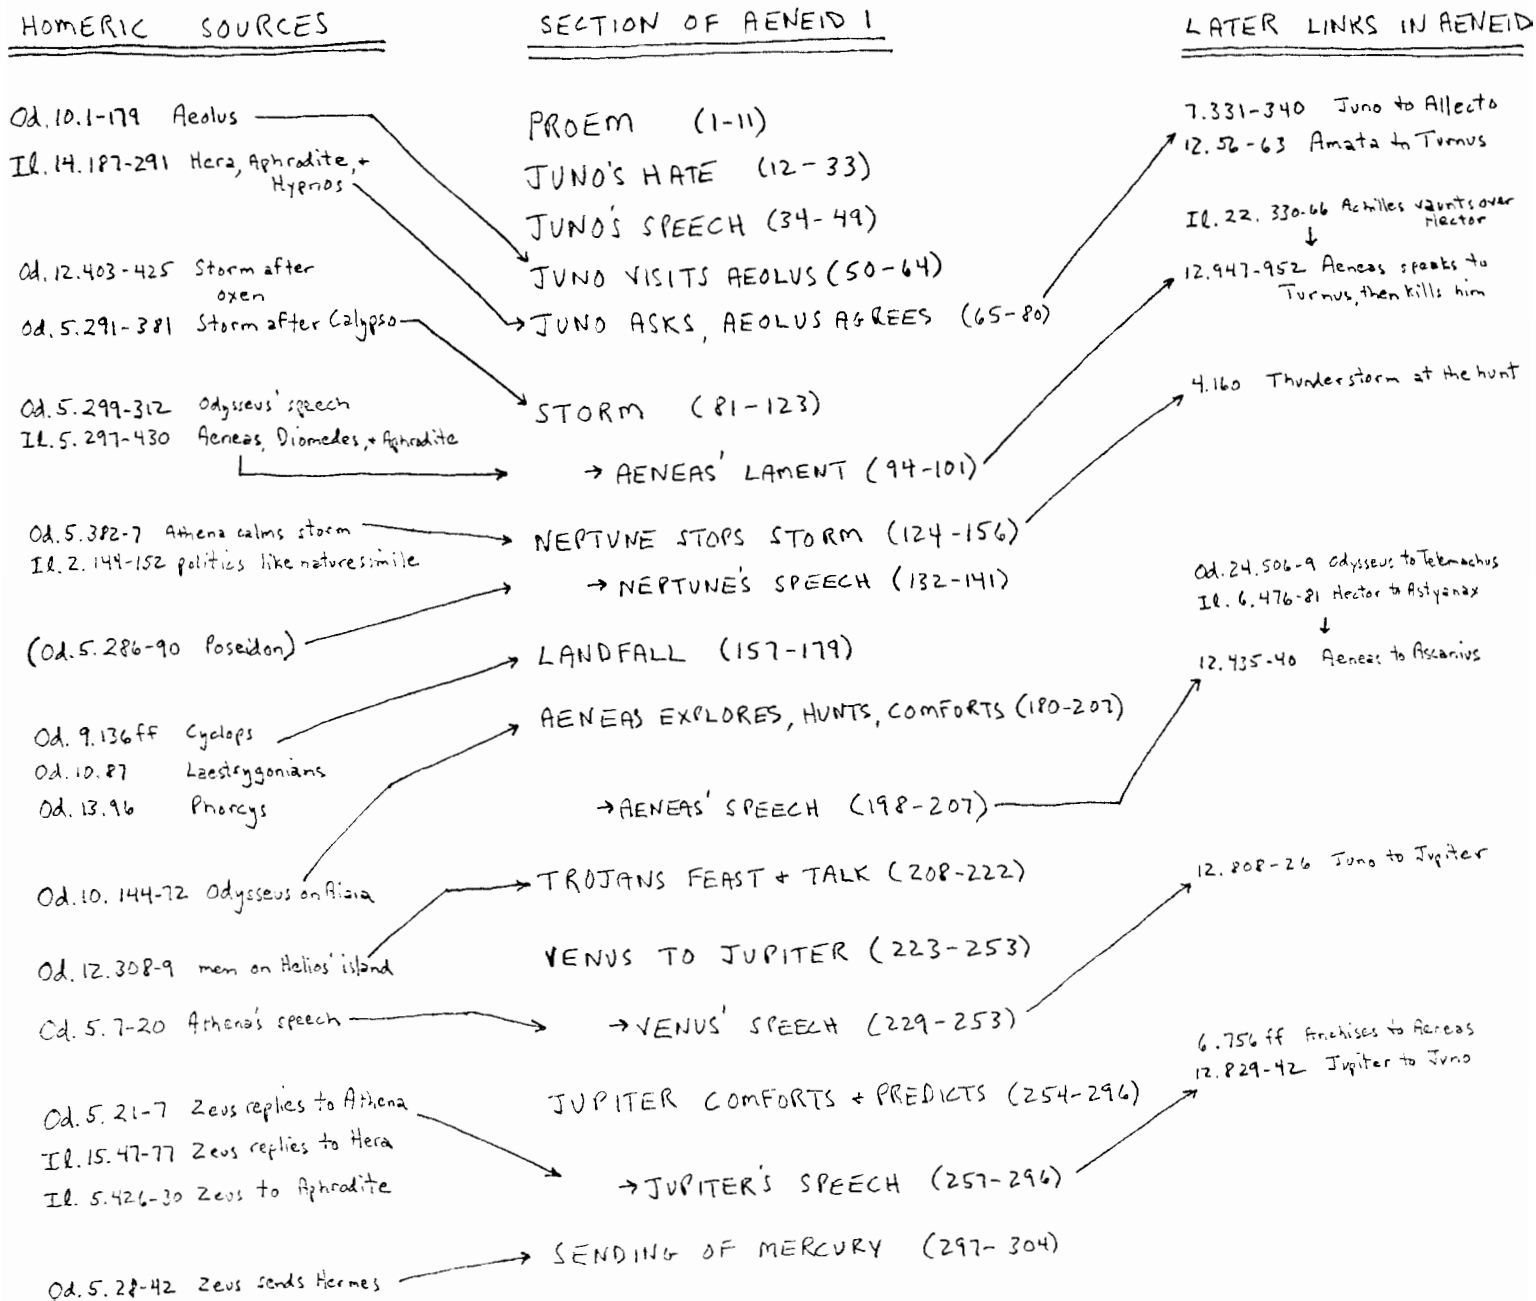 HOMERIC SOURCES
Od. 10.1-179 Aeolus
Il. 14.187-291 Hera, Aphrodite, +
Hypnos
Od. 12.403-425 Storm after
oxen
Od. 5.291-381 Storm after Calypso
Od. 5.299-312 Odysseus' speech
Il. 5.297-430 Aeneas, Diomedes, + Aphrodite
Od. 5.382-7 Athena calms storm
Il. 2.144-152 politics like nature simile
(Od. 5.286-90 Poseidon)
Od. 9.136ff Cyclops
Od. 10.87 Laestrygonians
Od. 13.96 Phorcys
Od. 10.144-72 Odysseus on Aiaia
Od. 12.308-9 men on Helios' island
Od. 5.7-20 Athena's speech
Od. 5.21-7 Zeus replies to Athena
Il. 15.47-77 Zeus replies to Hera
Il. 5.426-30 Zeus to Aphrodite
Od. 5.28-42 Zeus sends Hermes
SECTION OF AENEID 1
PROEM (1-11)
JUNO'S HATE (12-33)
JUNO'S SPEECH (34-49)
JUNO VISITS AEOLUS (50-64)
JUNO ASKS, AEOLUS AGREES (65-80)
STORM (81-123)
→ AENEAS' LAMENT (94-101)
NEPTUNE STOPS STORM (124-156)
→ NEPTUNE'S SPEECH (132-141)
LANDFALL (157-179)
AENEAS EXPLORES, HUNTS, COMFORTS (180-207)
→ AENEAS' SPEECH (198-207)
TROJANS FEAST + TALK (208-222)
VENUS TO JUPITER (223-253)
→ VENUS' SPEECH (229-253)
JUPITER COMFORTS + PREDICTS (254-296)
→ JUPITER'S SPEECH (257-296)
SENDING OF MERCURY (297-304)
LATER LINKS IN AENEID
7.331-340 Juno to Allecto
12.56-63 Amata to Turnus
Il. 22.330-66 Achilles vaunts over
Hector
↓
12.947-952 Aeneas speaks to
Turnus, then kills him
4.160 Thunderstorm at the hunt
Od. 24.506-9 Odysseus to Telemachus
Il. 6.476-81 Hector to Astyanax
↓
12.435-40 Aeneas to Ascanius
12.808-26 Juno to Jupiter
6.756ff Anchises to Aeneas
12.829-42 Jupiter to Juno